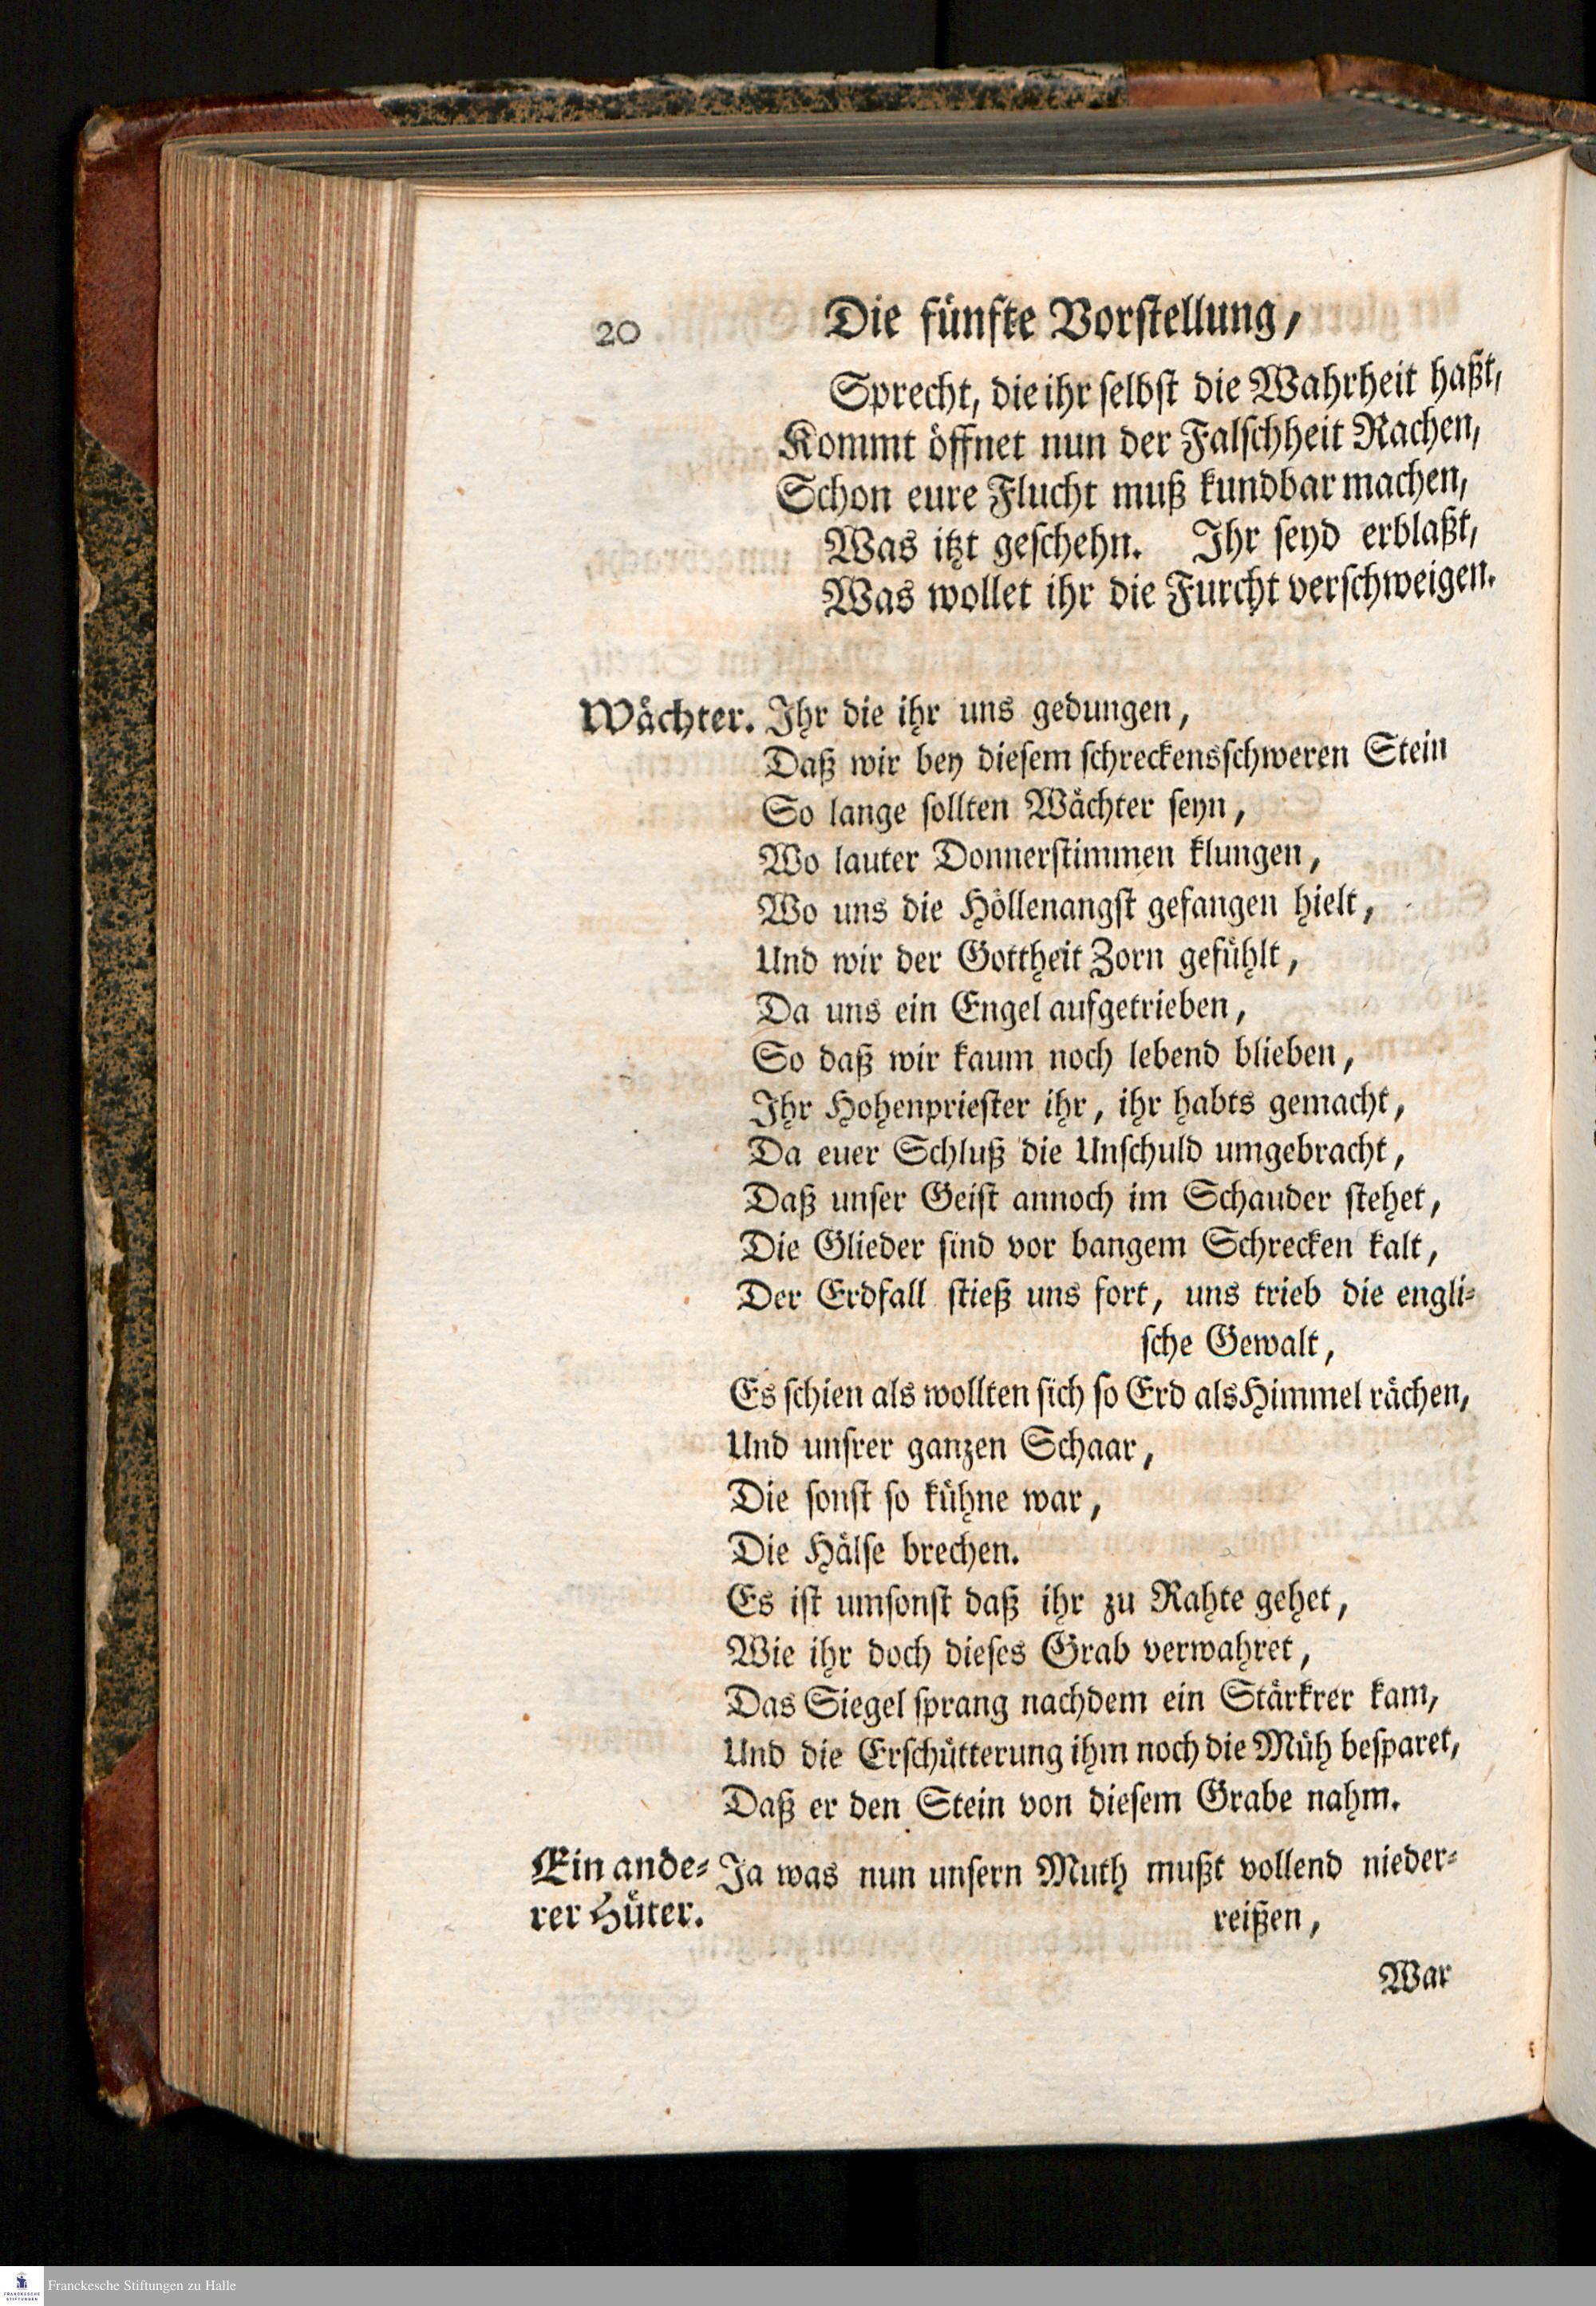 20 Die fünfte Vorstellung,
Sprecht, die ihr selbst die Wahrheit haßt,
Kommt öffnet nun der Falschheit Rachen,
Schon eure Flucht muß kundbar machen,
Was itzt geschehn. Ihr seyd erblaßt,
Was wollet ihr die Furcht verschweigen.
Wächter. Ihr die ihr uns gedungen,
Daß wir bey diesem schreckensschweren Stein
So lange sollten Wächter seyn,
Wo lauter Donnerstimmen klungen,
Wo uns die Höllenangst gefangen hielt,
Und wir der Gottheit Zorn gefühlt,
Da uns ein Engel aufgetrieben,
So daß wir kaum noch lebend blieben,
Ihr Hohenpriester ihr, ihr habts gemacht,
Da euer Schluß die Unschuld umgebracht,
Daß unser Geist annoch im Schauder stehet,
Die Glieder sind vor bangem Schrecken kalt,
Der Erdfall stieß uns fort, uns trieb die engli-
sche Gewalt,
Es schien als wollten sich so Erd als Himmel rächen,
Und unsrer ganzen Schaar,
Die sonst so kühne war,
Die Hälse brechen.
Es ist umsonst daß ihr zu Rahte gehet,
Wie ihr doch dieses Grab verwahret,
Das Siegel sprang nachdem ein Stärkrer kam,
Und die Erschütterung ihm noch die Müh besparet,
Daß er den Stein von diesem Grabe nahm.
Ein ande- Ja was nun unsern Muth mußt vollend nieder-
rer Hüter. reißen,
War
Franckesche Stiftungen zu Halle
FRANCKESCHE
STIFTUNGEN